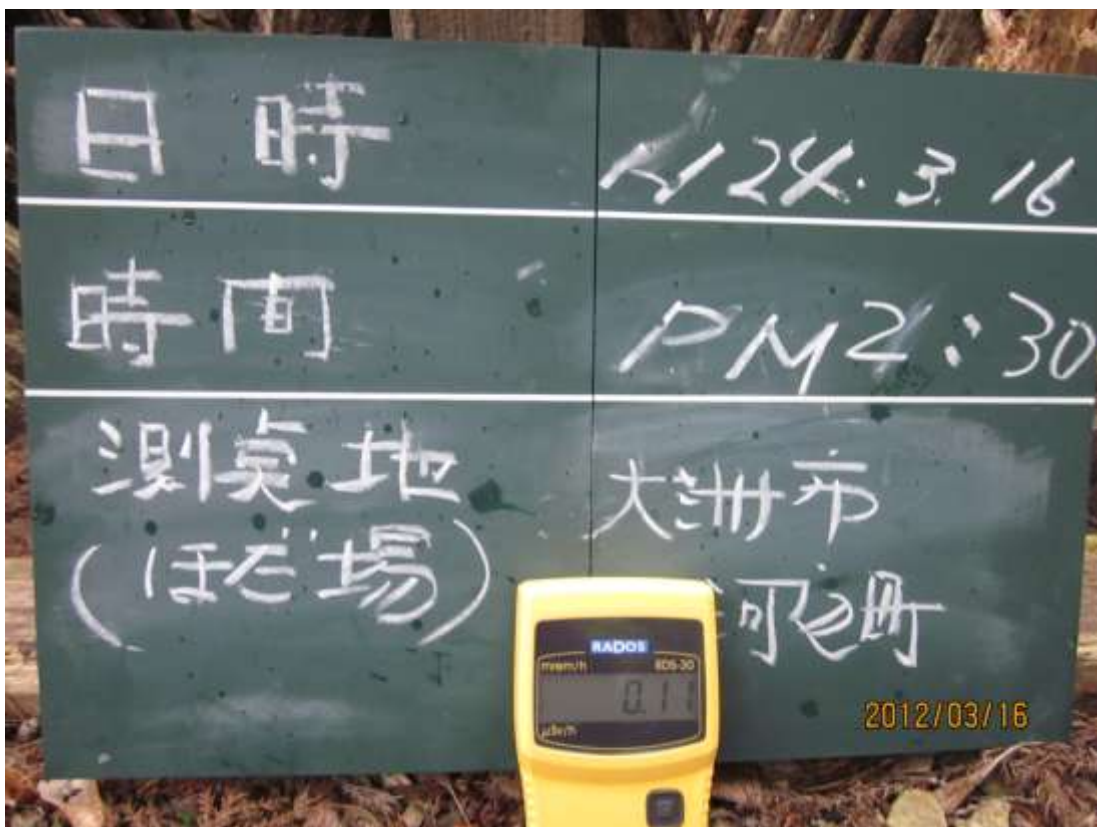 日時 H24.3.16
時間 PM2:30
測定地 大洲市
(ほだ場) 河辺町
RADOS
mrem/h RDS-30
0.11
μSv/h
2012/03/16